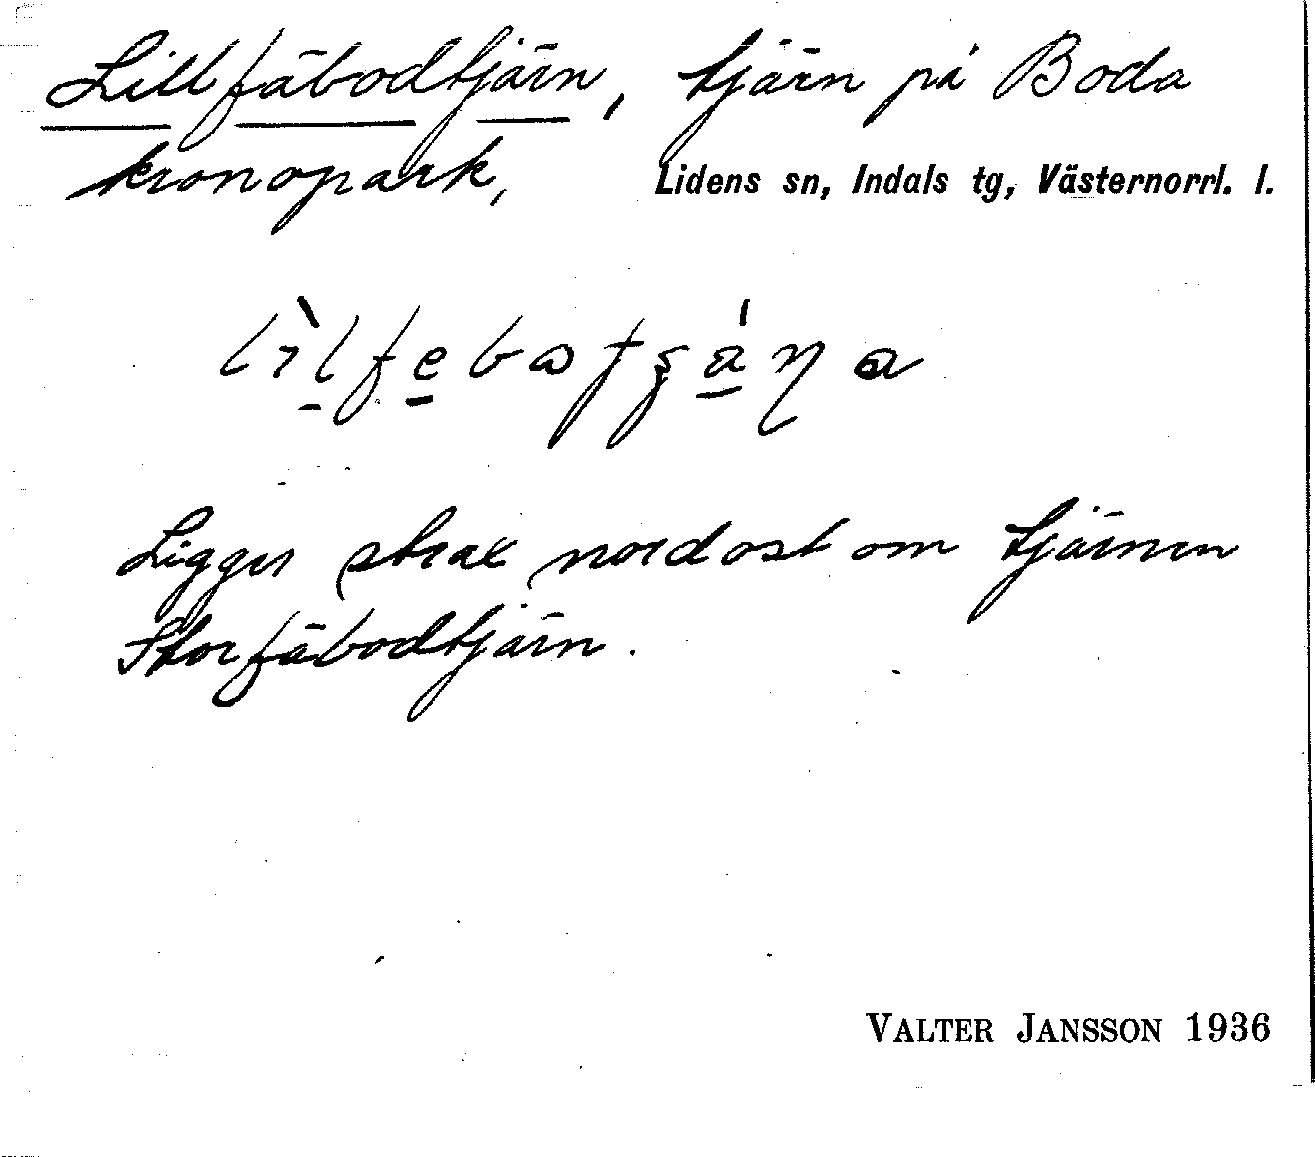 Lillfäbodtjärn, tjärn på Boda
kronopark, Lidens sn, Indals tg, Västernorrl. l.
Ligger strax nordost om tjärnen
Storfäbodtjärn.
VALTER JANSSON 1936